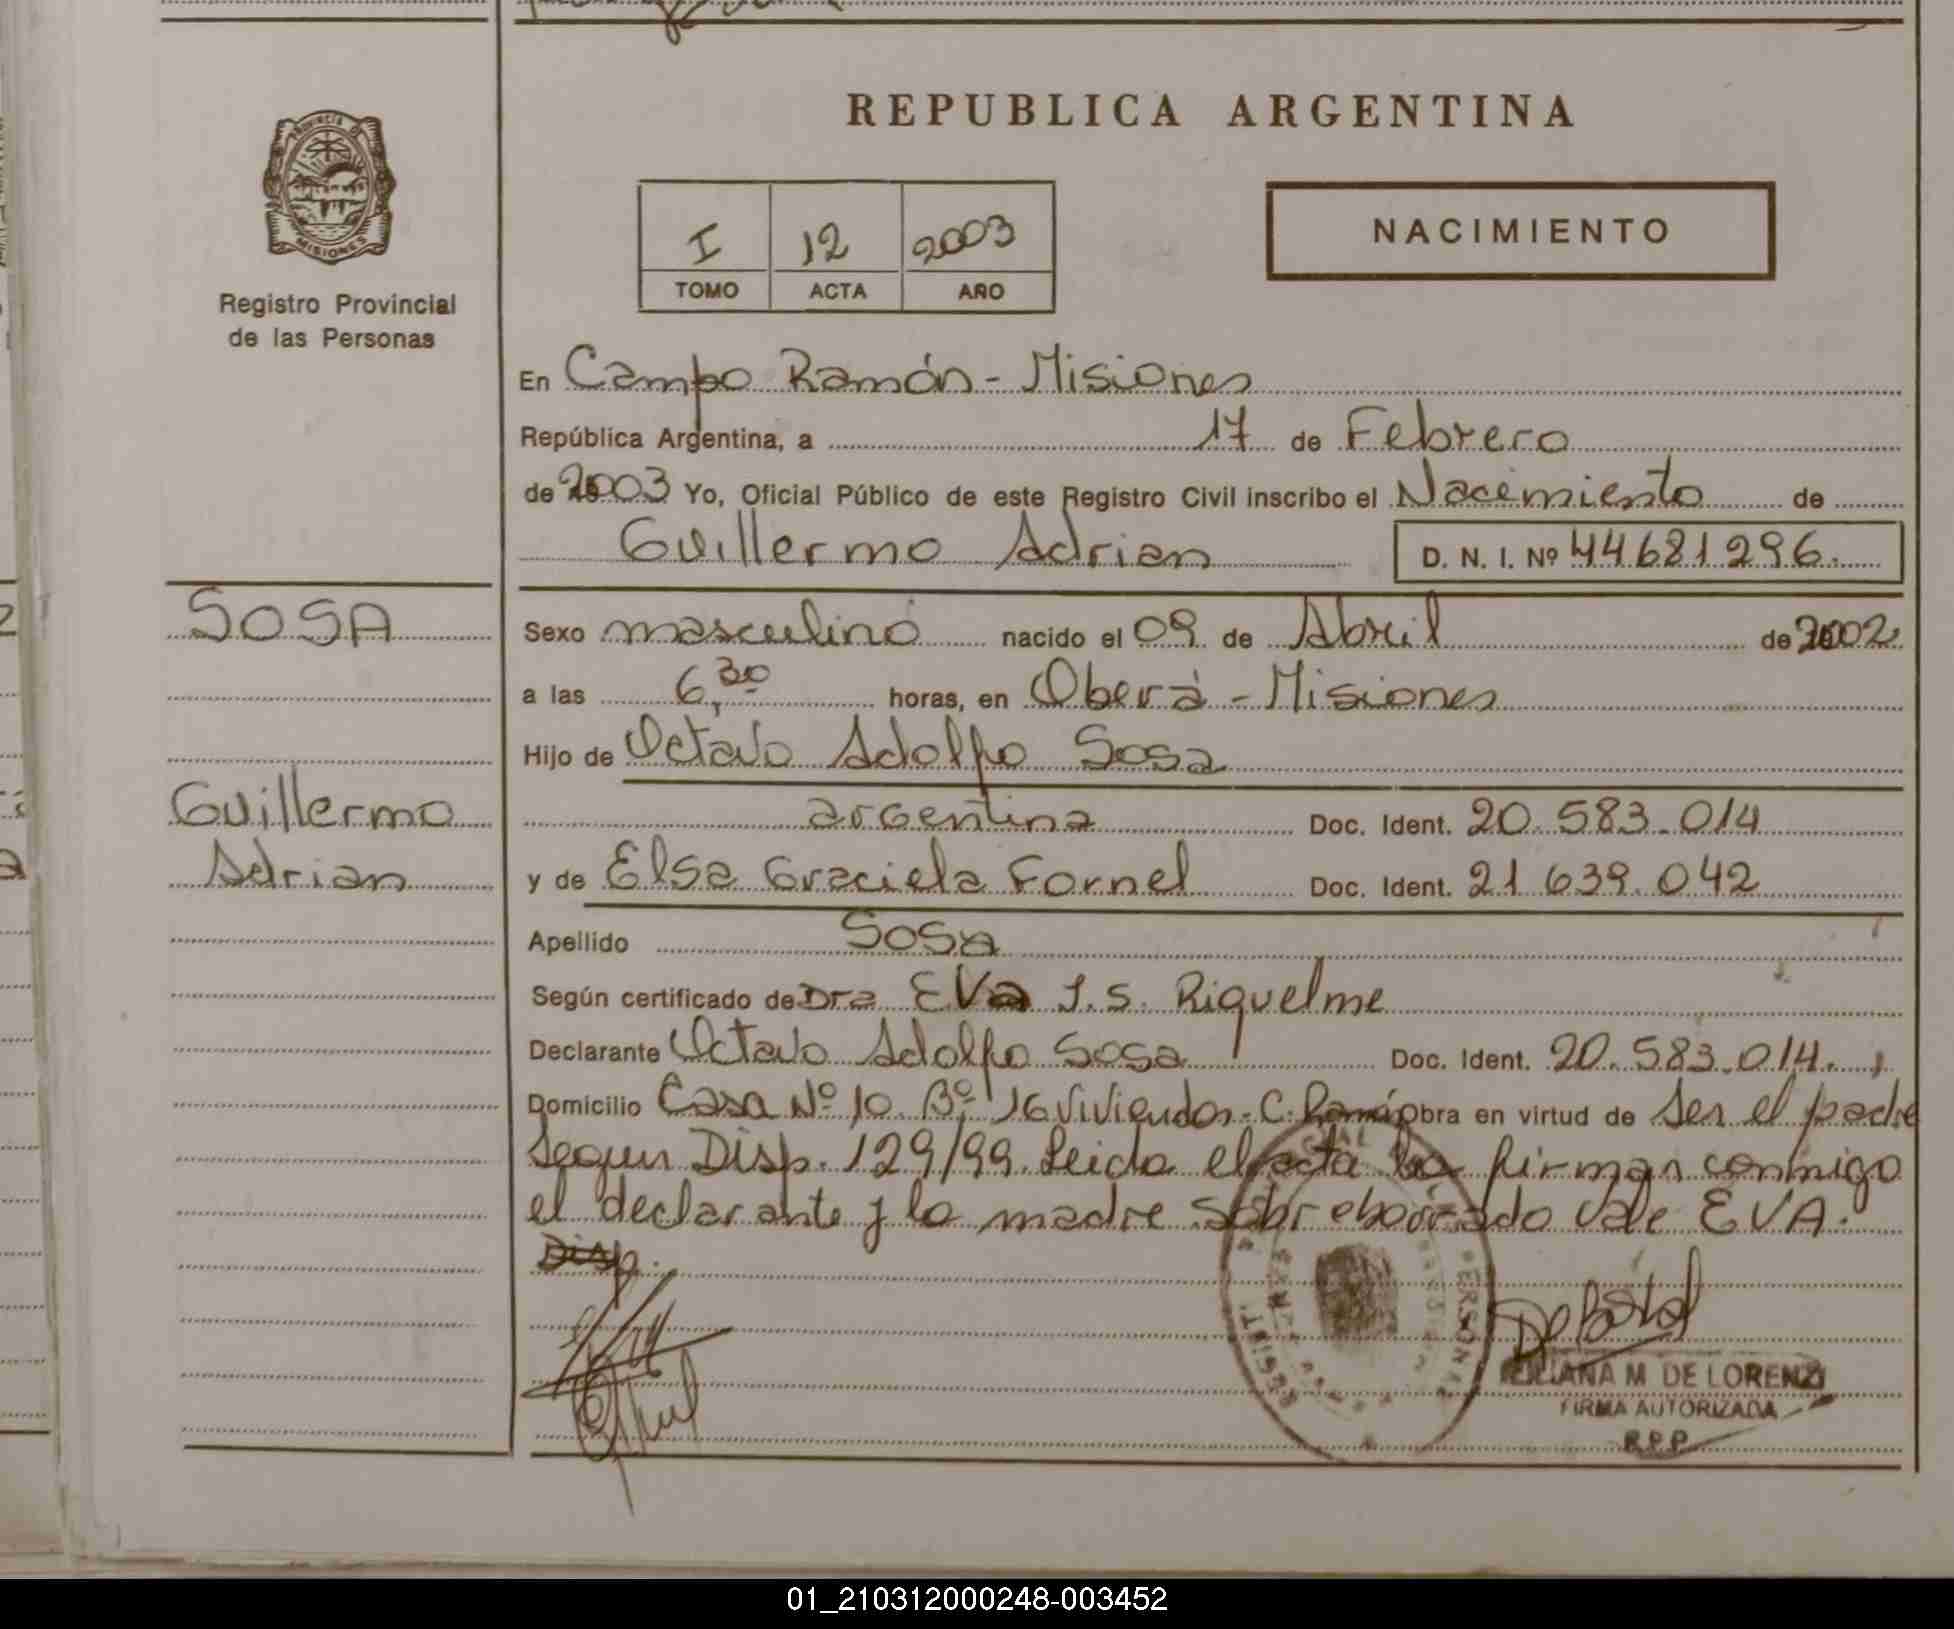 REPUBLICA ARGENTINA
PROVINCIA DE
MISIONES
Registro Provincial
de las Personas
I 12 2003
TOMO ACTA AÑO
NACIMIENTO
En Campo Ramón - Misiones
República Argentina, a 17 de Febrero
de 2003 Yo, Oficial Público de este Registro Civil inscribo el Nacimiento de
Guillermo Adrian D. N. I. Nº 44681296.
SOSA
Guillermo
Adrian
Sexo masculino nacido el 09 de Abril de 2002
a las 6,30 horas, en Oberá - Misiones
Hijo de Octavo Adolfo Sosa
argentina Doc. Ident. 20.583.014
y de Elsa Graciela Fornel Doc. Ident. 21.639.042
Apellido Sosa
Según certificado de Dra EVa S. Riquelme
Declarante Octavo Adolfo Sosa Doc. Ident. 20.583.014.
Domicilio Casa Nº 10 Bº 16 Viviendas - C. Ramón obra en virtud de ser el padre
Segun Disp. 129/99. Leida el acta la firman conmigo
el declarante y la madre sobreborrado vale EVA.
Disp.
LILIANA M DE LORENZI
FIRMA AUTORIZADA
R.P.P.
01_210312000248-003452